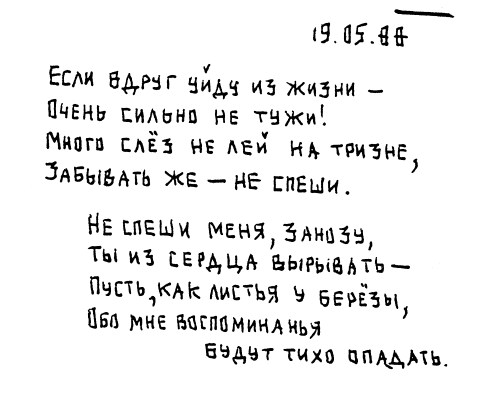 19.05.88
Если вдруг уйду из жизни –
Очень сильно не тужи!
Много слёз не лей на тризне,
Забывать же – не спеши.
Не спеши меня, занозу,
Ты из сердца вырывать –
Пусть, как листья у берёзы,
Обо мне воспоминанья
будут тихо опадать.